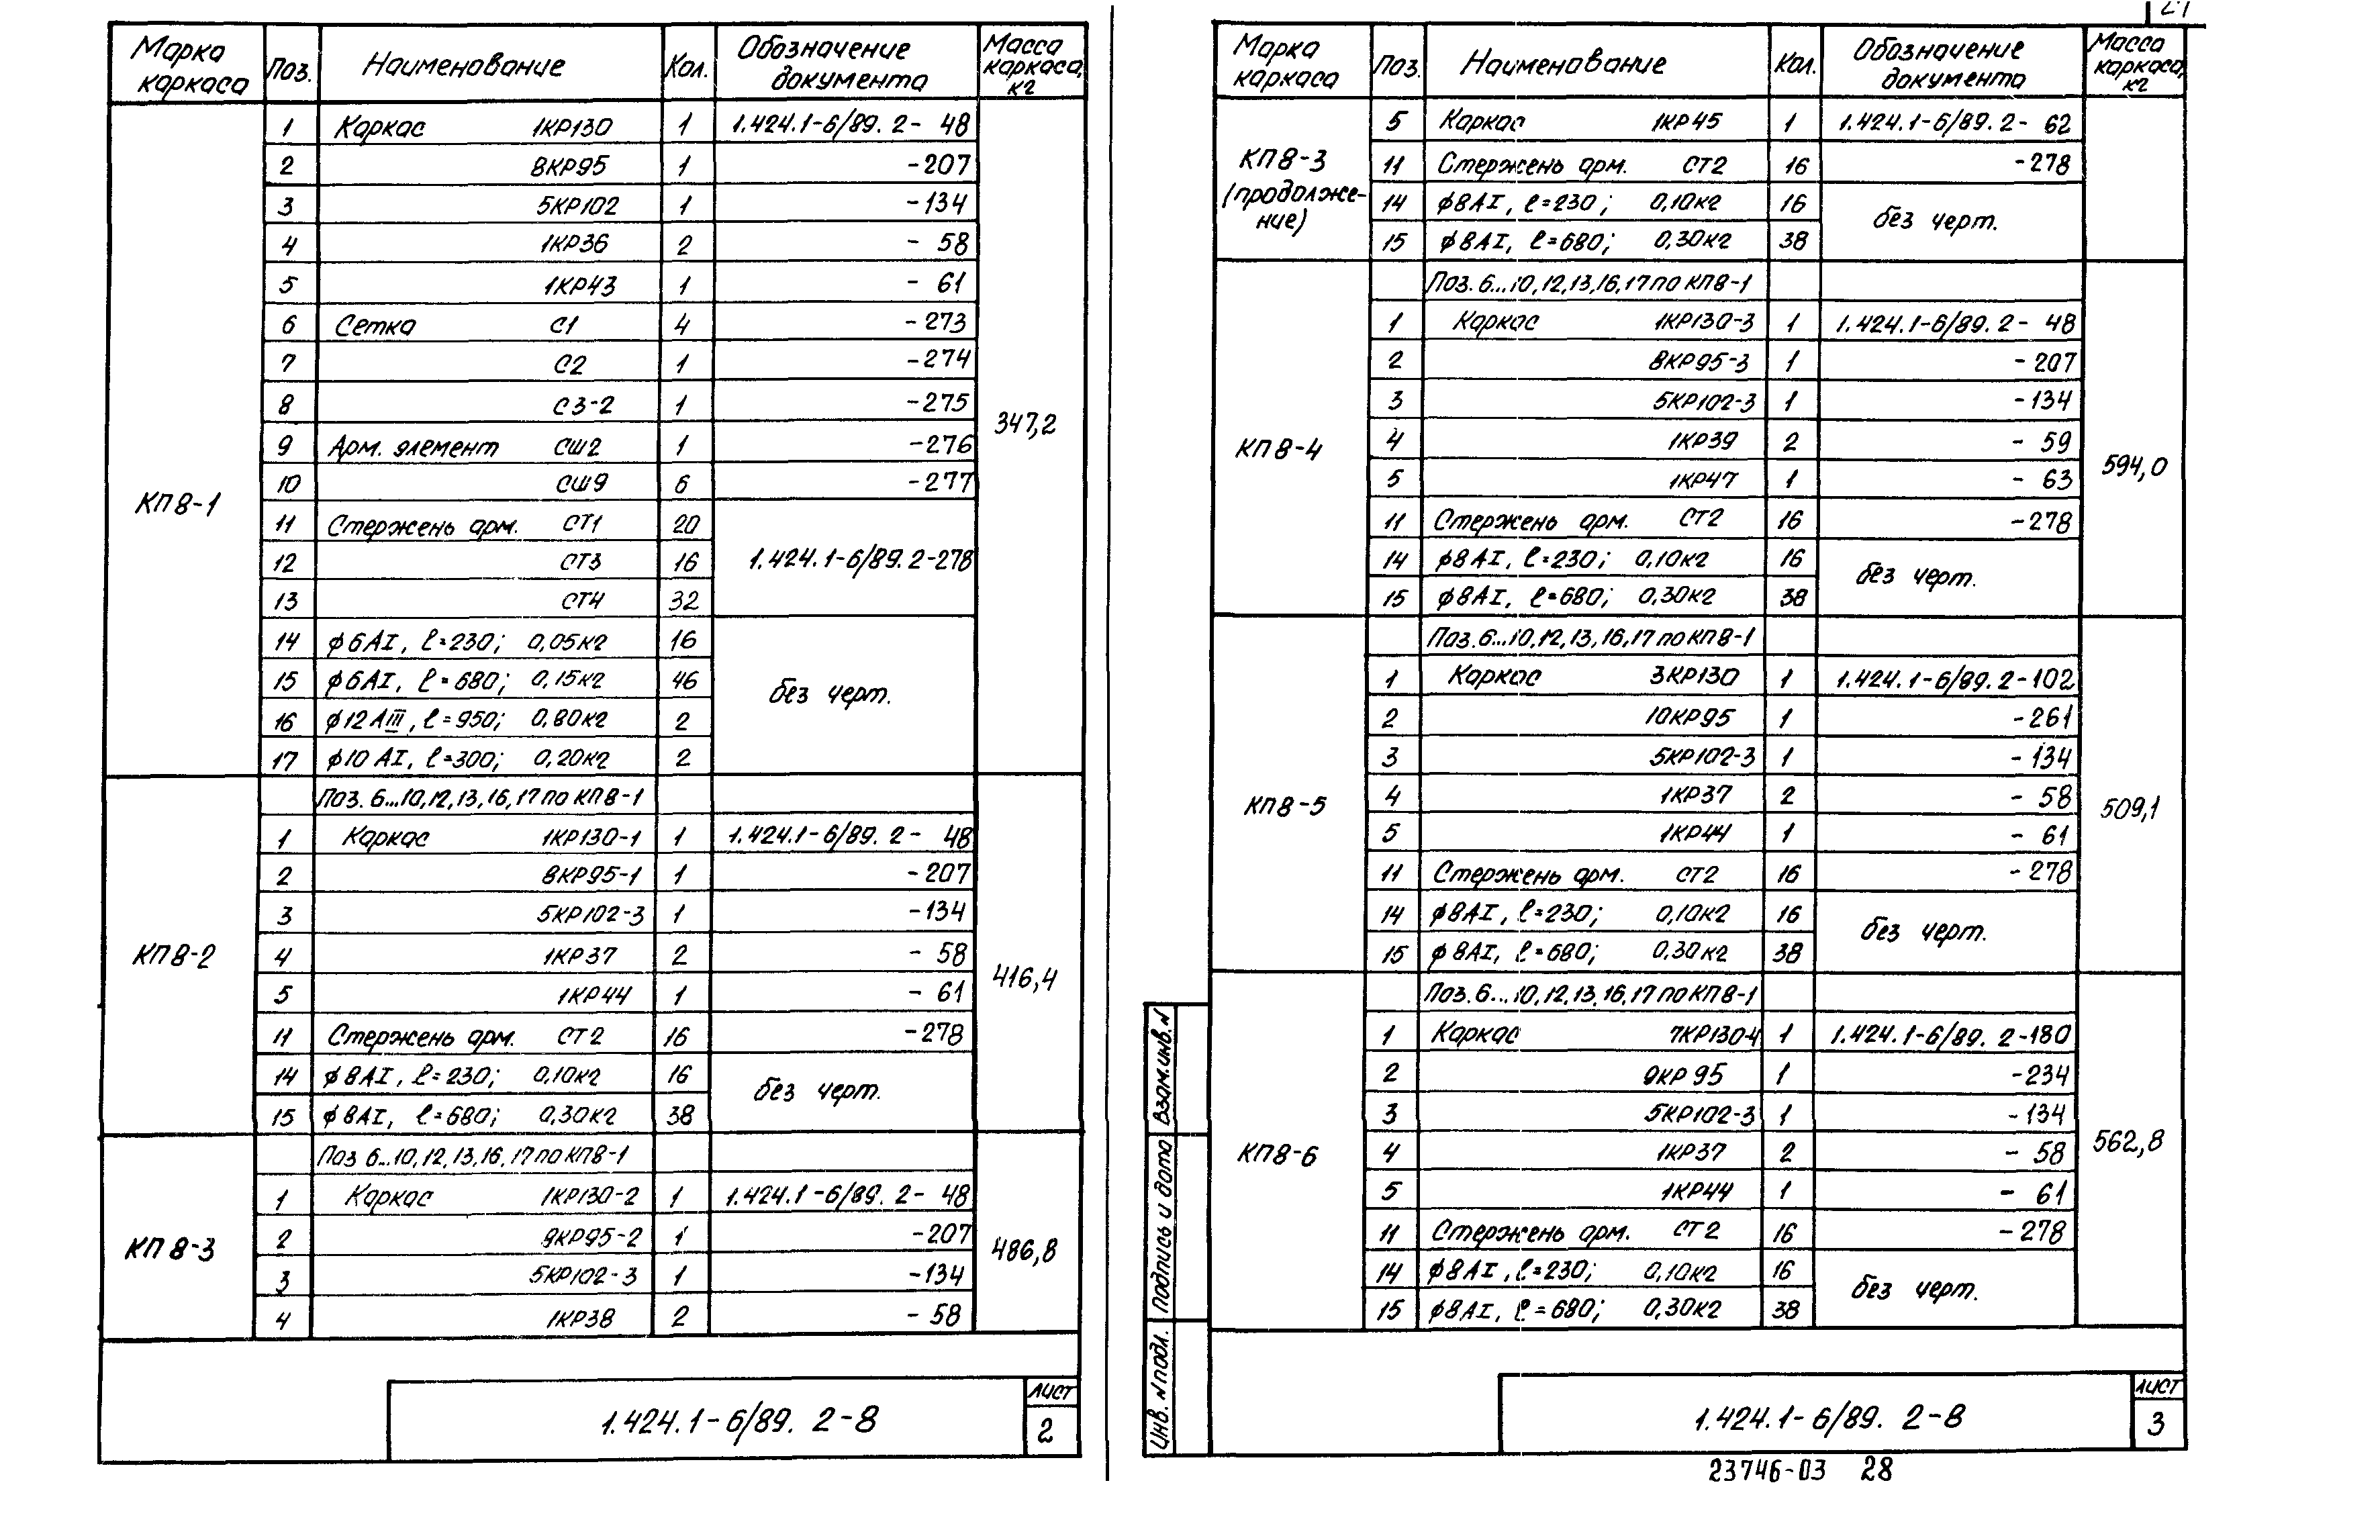 Марка каркаса | Поз. | Наименование | Кол. | Обозначение документа | Масса каркаса, кг
КП8-1 | 1 | Каркас 1КР130 | 1 | 1.424.1-6/89. 2- 48 | 347,2
2 | 8КР95 | 1 | -207
3 | 5КР102 | 1 | -134
4 | 1КР36 | 2 | - 58
5 | 1КР43 | 1 | - 61
6 | Сетка С1 | 4 | -273
7 | С2 | 1 | -274
8 | С3-2 | 1 | -275
9 | Арм. элемент СШ2 | 1 | -276
10 | СШ9 | 6 | -277
11 | Стержень арм. СТ1 | 20 | 1.424.1-6/89. 2-278
12 | СТ3 | 16
13 | СТ4 | 32
14 | ϕ6АI, ℓ=230; 0,05кг | 16 | без черт.
15 | ϕ6АI, ℓ=680; 0,15кг | 46
16 | ϕ12АIII, ℓ=950; 0,80кг | 2
17 | ϕ10АI, ℓ=300; 0,20кг | 2
КП8-2 | Поз. 6...10,12,13,16,17 по КП8-1 | 416,4
1 | Каркас 1КР130-1 | 1 | 1.424.1-6/89. 2- 48
2 | 8КР95-1 | 1 | -207
3 | 5КР102-3 | 1 | -134
4 | 1КР37 | 2 | - 58
5 | 1КР44 | 1 | - 61
11 | Стержень арм. СТ2 | 16 | -278
14 | ϕ8АI, ℓ=230; 0,10кг | 16 | без черт.
15 | ϕ8АI, ℓ=680; 0,30кг | 38
КП8-3 | Поз 6...10,12,13,16,17 по КП8-1 | 486,8
1 | Каркас 1КР130-2 | 1 | 1.424.1-6/89. 2- 48
2 | 9КР95-2 | 1 | -207
3 | 5КР102-3 | 1 | -134
4 | 1КР38 | 2 | - 58
1.424.1-6/89. 2-8
Лист
2
Марка каркаса | Поз. | Наименование | Кол. | Обозначение документа | Масса каркаса, кг
КП8-3 (продолжение) | 5 | Каркас 1КР45 | 1 | 1.424.1-6/89. 2- 62
11 | Стержень арм. СТ2 | 16 | -278
14 | ϕ8АI, ℓ=230; 0,10кг | 16 | без черт.
15 | ϕ8АI, ℓ=680; 0,30кг | 38
КП8-4 | Поз. 6...10,12,13,16,17 по КП8-1 | 594,0
1 | Каркас 1КР130-3 | 1 | 1.424.1-6/89. 2- 48
2 | 8КР95-3 | 1 | -207
3 | 5КР102-3 | 1 | -134
4 | 1КР39 | 2 | - 59
5 | 1КР47 | 1 | - 63
11 | Стержень арм. СТ2 | 16 | -278
14 | ϕ8АI, ℓ=230; 0,10кг | 16 | без черт.
15 | ϕ8АI, ℓ=680; 0,30кг | 38
КП8-5 | Поз. 6...10,12,13,16,17 по КП8-1 | 509,1
1 | Каркас 3КР130 | 1 | 1.424.1-6/89. 2-102
2 | 10КР95 | 1 | -261
3 | 5КР102-3 | 1 | -134
4 | 1КР37 | 2 | - 58
5 | 1КР44 | 1 | - 61
11 | Стержень арм. СТ2 | 16 | -278
14 | ϕ8АI, ℓ=230; 0,10кг | 16 | без черт.
15 | ϕ8АI, ℓ=680; 0,30кг | 38
КП8-6 | Поз. 6...10,12,13,16,17 по КП8-1 | 562,8
1 | Каркас 7КР130-4 | 1 | 1.424.1-6/89. 2-180
2 | 9КР95 | 1 | -234
3 | 5КР102-3 | 1 | -134
4 | 1КР37 | 2 | - 58
5 | 1КР44 | 1 | - 61
11 | Стержень арм. СТ2 | 16 | -278
14 | ϕ8АI, ℓ=230; 0,10кг | 16 | без черт.
15 | ϕ8АI, ℓ=680; 0,30кг | 38
Взам.инв.N
Подпись и дата
Инв. N подл.
1.424.1-6/89. 2-8
Лист
3
23746-03 28